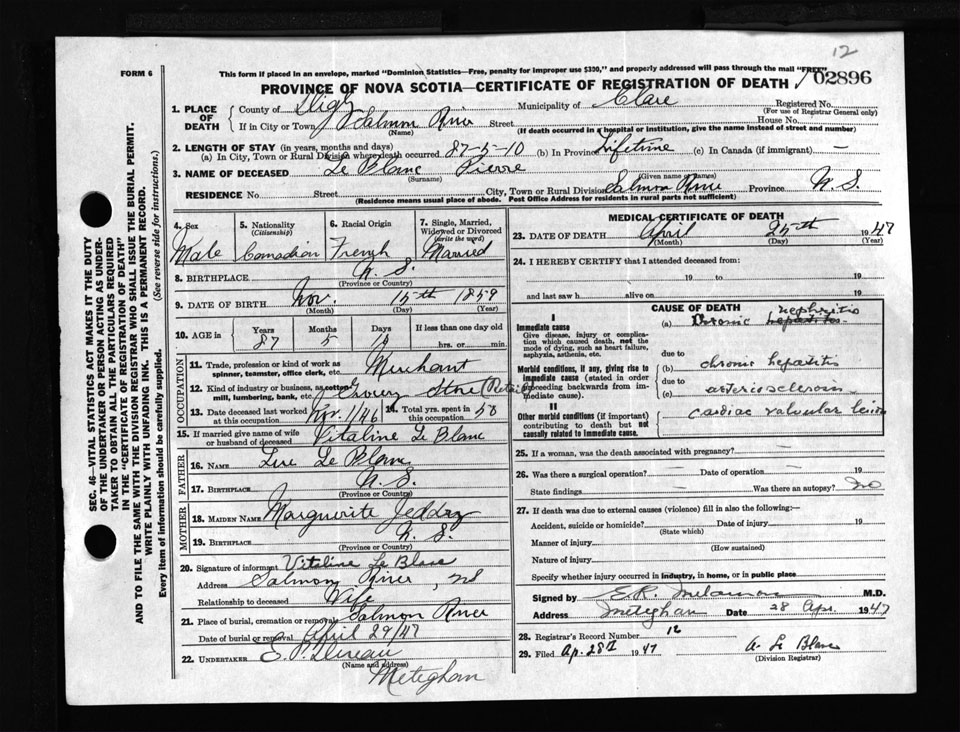 12
FORM 6
This form if placed in an envelope, marked "Dominion Statistics—Free, penalty for improper use $300," and properly addressed will pass through the mail "FREE"
PROVINCE OF NOVA SCOTIA—CERTIFICATE OF REGISTRATION OF DEATH
02896
1. PLACE OF DEATH
County of Digby Municipality of Clare Registered No.
(For use of Registrar General only)
If in City or Town Salmon River Street House No.
(Name) (If death occurred in a hospital or institution, give the name instead of street and number)
2. LENGTH OF STAY (in years, months and days)
(a) In City, Town or Rural Division where death occurred 87-5-10 (b) In Province Lifetime (c) In Canada (if immigrant) —
3. NAME OF DECEASED Le Blanc Pierre
(Surname) (Given names)
RESIDENCE No. Street City, Town or Rural Division Salmon River Province N.S.
(Residence means usual place of abode. Post Office Address for residents in rural parts not sufficient)
SEC. 46—VITAL STATISTICS ACT MAKES IT THE DUTY OF THE UNDERTAKER OR PERSON ACTING AS UNDERTAKER TO OBTAIN ALL THE PARTICULARS REQUIRED IN THE "CERTIFICATE OF REGISTRATION OF DEATH"
AND TO FILE THE SAME WITH THE DIVISION REGISTRAR WHO SHALL ISSUE THE BURIAL PERMIT.
WRITE PLAINLY WITH UNFADING INK. THIS IS A PERMANENT RECORD.
Every item of information should be carefully supplied. (See reverse side for instructions.)
4. Sex
Male
5. Nationality
(Citizenship)
Canadian
6. Racial Origin
French
7. Single, Married, Widowed or Divorced
(write the word)
Married
8. BIRTHPLACE N.S.
(Province or Country)
9. DATE OF BIRTH Nov. 15th 1859
(Month) (Day) (Year)
10. AGE in Years Months Days If less than one day old
87 5 10 hrs. or min.
OCCUPATION
11. Trade, profession or kind of work as spinner, teamster, office clerk, etc. Merchant
12. Kind of industry or business, as cotton mill, lumbering, bank, etc. Grocery Store (Retail)
13. Date deceased last worked at this occupation Nov. 1/46 14. Total yrs. spent in this occupation 50
15. If married give name of wife or husband of deceased Vitaline Le Blanc
FATHER
16. NAME Le Blanc
17. BIRTHPLACE N.S.
(Province or Country)
MOTHER
18. MAIDEN NAME Marguerite Jeddry
19. BIRTHPLACE N.S.
(Province or Country)
20. Signature of informant Vitaline Le Blanc
Address Salmon River, NS
Relationship to deceased Wife
21. Place of burial, cremation or removal Salmon River
Date of burial or removal April 29/47
22. UNDERTAKER
(Name and address)
Meteghan
MEDICAL CERTIFICATE OF DEATH
23. DATE OF DEATH April 25th 1947
(Month) (Day) (Year)
24. I HEREBY CERTIFY that I attended deceased from:
19 to 19
and last saw h alive on 19
CAUSE OF DEATH
I
Immediate cause
Give disease, injury or complication which caused death, not the mode of dying, such as heart failure, asphyxia, asthenia, etc.
(a) Chronic nephritis
due to
Morbid conditions, if any, giving rise to immediate cause (stated in order proceeding backwards from immediate cause).
(b) chronic hepatitis
due to
(c) arteriosclerosis
II
Other morbid conditions (if important) contributing to death but not causally related to immediate cause.
cardiac valvular lesion
25. If a woman, was the death associated with pregnancy? —
26. Was there a surgical operation? — Date of operation — 19
State findings — Was there an autopsy? no
27. If death was due to external causes (violence) fill in also the following:—
Accident, suicide or homicide? Date of injury 19
(State which)
Manner of injury
(How sustained)
Nature of injury
Specify whether injury occurred in industry, in home, or in public place
Signed by E.R. Melanson M.D.
Address Meteghan Date 28 Apr. 1947
28. Registrar's Record Number 12
29. Filed Ap. 28th 1947 A. Le Blanc
(Division Registrar)